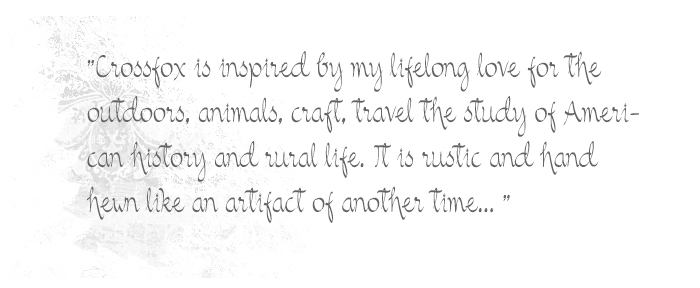 "Crossfox is inspired by my lifelong love for the
outdoors, animals, craft, travel the study of Ameri-
can history and rural life. It is rustic and hand
hewn like an artifact of another time... "